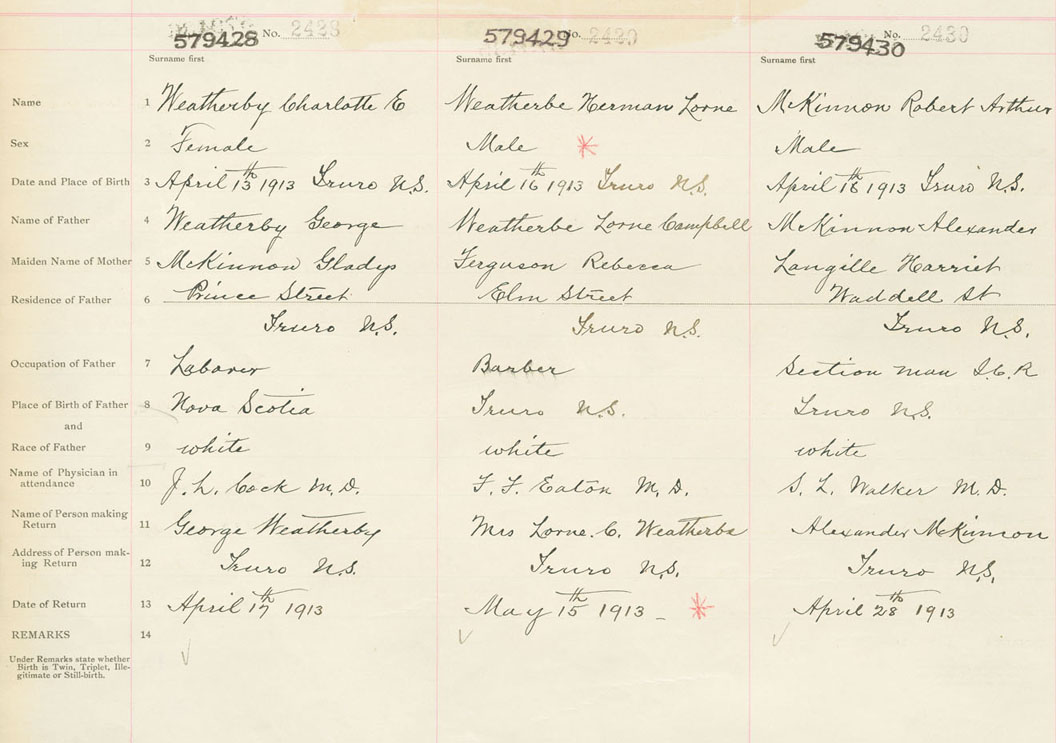 579428 No. 2428 579429 No. 2429 579430 No. 2430
Surname first Surname first Surname first
Name 1 Weatherby Charlotte E Weatherbe Herman Lorne McKinnon Robert Arthur
Sex 2 Female Male Male
Date and Place of Birth 3 April 13th 1913 Truro N.S. April 16th 1913 Truro N.S. April 18th 1913 Truro N.S.
Name of Father 4 Weatherby George Weatherbe Lorne Campbell McKinnon Alexander
Maiden Name of Mother 5 McKinnon Gladys Ferguson Rebecca Langille Harriet
Residence of Father 6 Prince Street Elm Street Waddell St
Truro N.S. Truro N.S. Truro N.S.
Occupation of Father 7 Laborer Barber Section man I.C.R
Place of Birth of Father 8 Nova Scotia Truro N.S. Truro N.S.
and
Race of Father 9 white white white
Name of Physician in
attendance 10 J. L. Cock M.D. F. F. Eaton M.D. S. L. Walker M.D.
Name of Person making
Return 11 George Weatherby Mrs Lorne. C. Weatherbe Alexander McKinnon
Address of Person mak-
ing Return 12 Truro N.S. Truro N.S. Truro N.S.
Date of Return 13 April 17th 1913 May 15th 1913 April 28th 1913
REMARKS 14
Under Remarks state whether
Birth is Twin, Triplet, Ille-
gitimate or Still-birth.